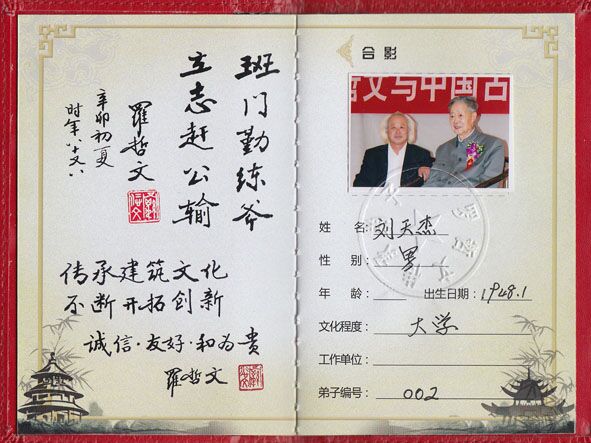 班门勤练斧
立志赶公输
羅哲文
辛卯初夏
时年八十又八
传承建筑文化
不断开拓创新
誠信·友好·和为贵
羅哲文
合影
文与中国古
姓 名: 刘天杰
性 别: 男
年 龄: 出生日期: 1948.1
文化程度: 大学
工作单位:
弟子编号: 002